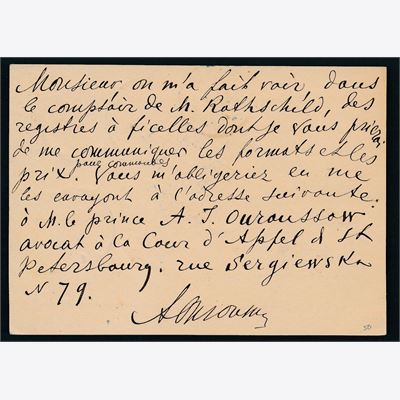 Monsieur on m'a fait voir, dans
le comptoir de M. Rothschild, des
registres à ficelles dont je vous prierai
de me communiquer les formats et les
pour commandes
prix. Vous m'obligeriez en me
les envoyant à l'adresse suivante:
à M. le prince A. J. Ouroussow
avocat à la Cour d'Appel d St
Petersbourg. rue Sergiewska
N 79.